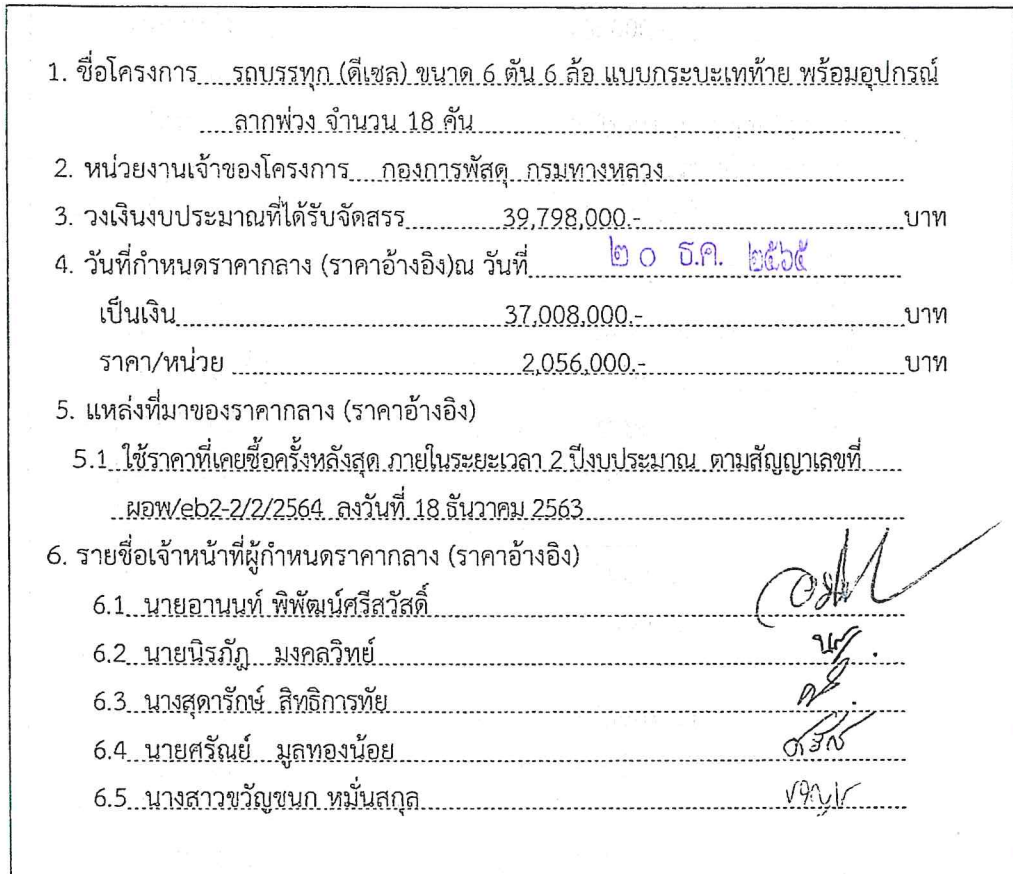 1. ชื่อโครงการ รถบรรทุก (ดีเซล) ขนาด 6 ตัน 6 ล้อ แบบกระบะเทท้าย พร้อมอุปกรณ์
ลากพ่วง จำนวน 18 คัน
2. หน่วยงานเจ้าของโครงการ กองการพัสดุ กรมทางหลวง
3. วงเงินงบประมาณที่ได้รับจัดสรร 39,798,000.- บาท
4. วันที่กำหนดราคากลาง (ราคาอ้างอิง)ณ วันที่ ๒๐ ธ.ค. ๒๕๖๕
เป็นเงิน 37,008,000.- บาท
ราคา/หน่วย 2,056,000.- บาท
5. แหล่งที่มาของราคากลาง (ราคาอ้างอิง)
5.1 ใช้ราคาที่เคยซื้อครั้งหลังสุด ภายในระยะเวลา 2 ปีงบประมาณ ตามสัญญาเลขที่
ผอพ/eb2-2/2/2564 ลงวันที่ 18 ธันวาคม 2563
6. รายชื่อเจ้าหน้าที่ผู้กำหนดราคากลาง (ราคาอ้างอิง)
6.1 นายอานนท์ พิพัฒน์ศรีสวัสดิ์
6.2 นายนิรภัฎ มงคลวิทย์
6.3 นางสุดารักษ์ สิทธิการทัย
6.4 นายศรัณย์ มูลทองน้อย
6.5 นางสาวขวัญชนก หมั่นสกุล